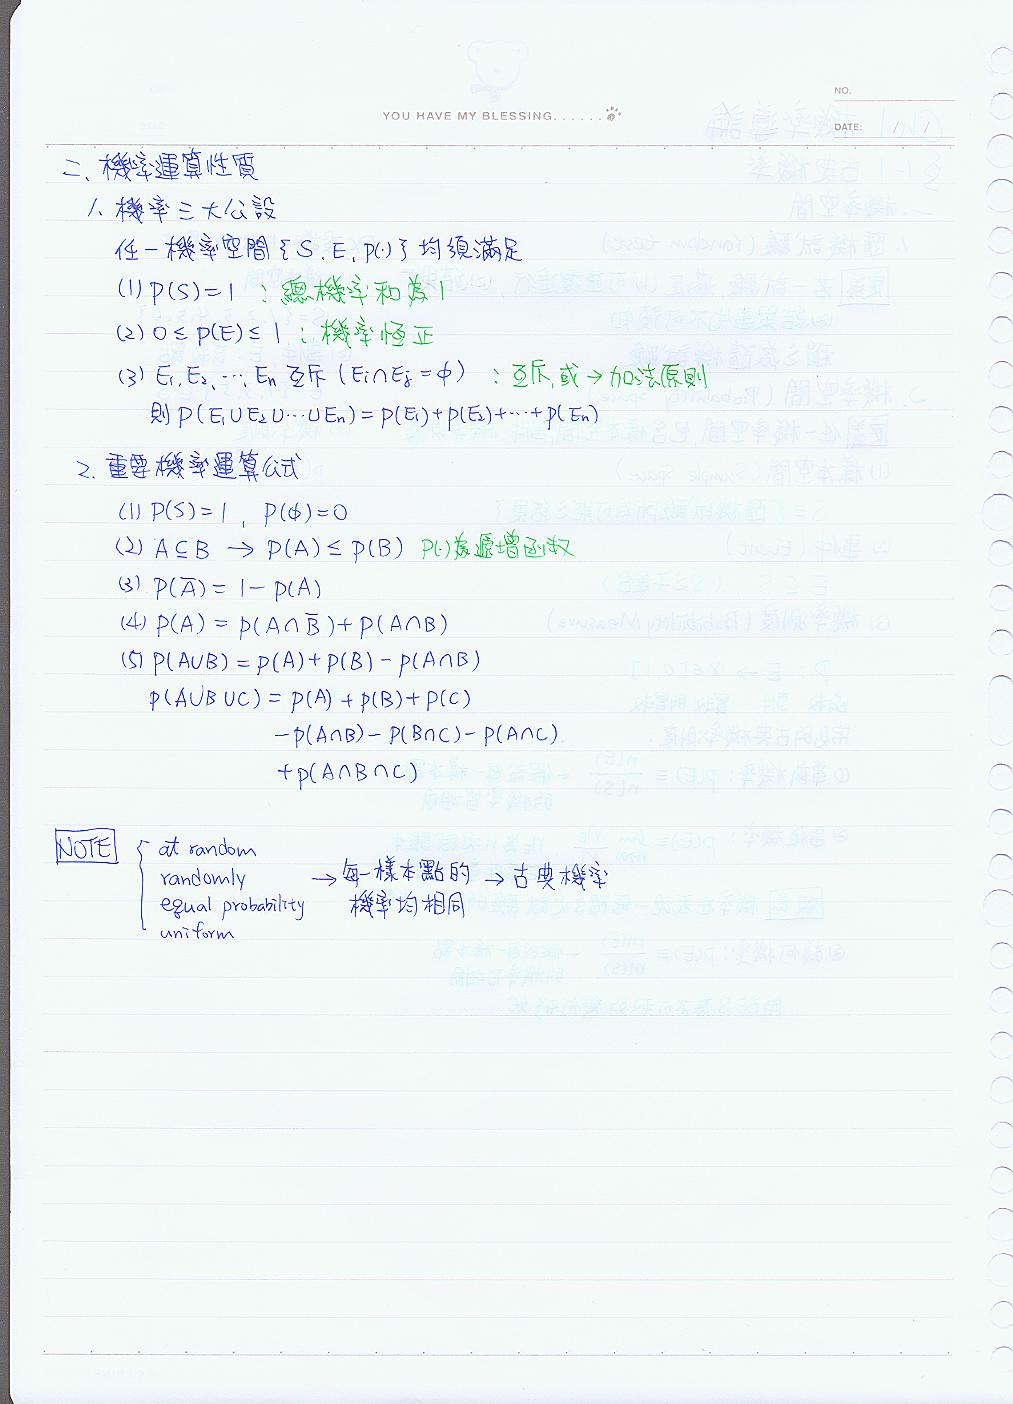 YOU HAVE MY BLESSING......
NO.
DATE: / /
二、機率運算性質
1. 機率三大公設
任一機率空間{S, E, P(·)}均須滿足
(1) P(S)=1 :總機率和為1
(2) 0≤P(E)≤1 :機率恆正
(3) E1, E2, ..., En 互斥 (Ei∩Ej=φ) :互斥,或→加法原則
則 P(E1∪E2∪...∪En)=P(E1)+P(E2)+...+P(En)
2. 重要機率運算公式
(1) P(S)=1, P(φ)=0
(2) A⊆B → P(A)≤P(B) P(·)為遞增函数
(3) P(A̅)=1-P(A)
(4) P(A)=P(A∩B̅)+P(A∩B)
(5) P(A∪B)=P(A)+P(B)-P(A∩B)
P(A∪B∪C)=P(A)+P(B)+P(C)
-P(A∩B)-P(B∩C)-P(A∩C)
+P(A∩B∩C)
NOTE { at random
randomly → 每一樣本點的 → 古典機率
equal probability 機率均相同
uniform